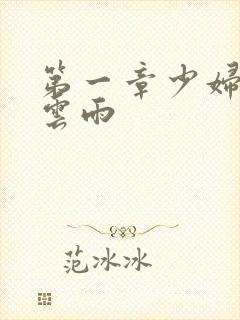 第一章少婦
雲雨
范冰冰